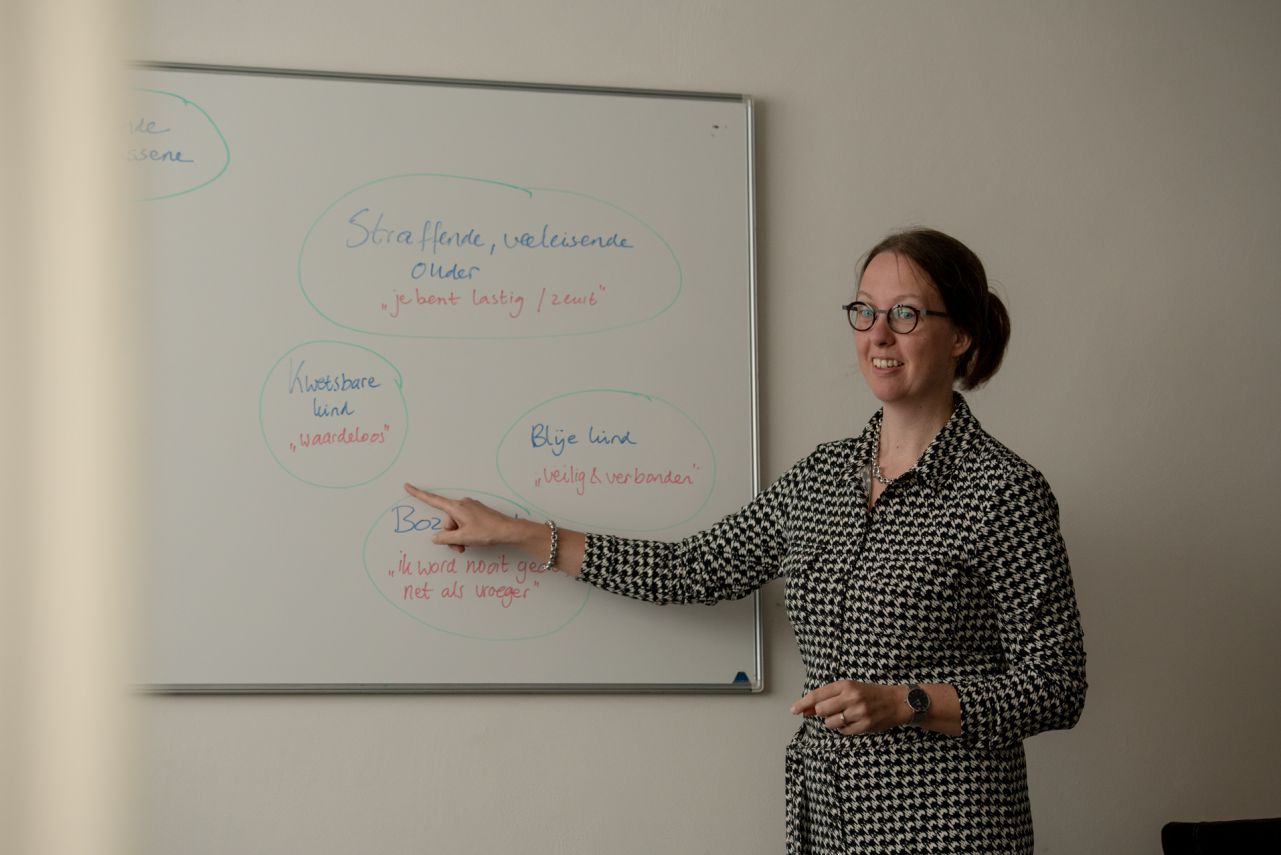 Straffende, veeleisende
ouder
„je bent lastig / zeurt"
Kwetsbare
kind
„waardeloos"
Blije kind
„veilig & verbonden"
„ik word nooit
net als vroeger"